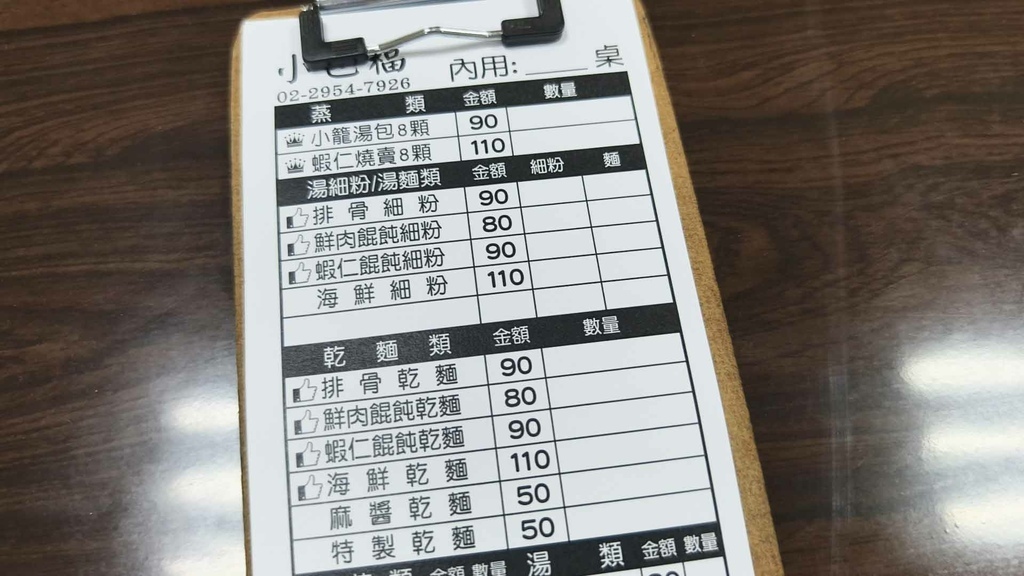 小包福 內用:____桌
02-2954-7926
蒸類 金額 數量
小籠湯包8顆 90
蝦仁燒賣8顆 110
湯細粉/湯麵類 金額 細粉 麵
排骨細粉 90
鮮肉餛飩細粉 80
蝦仁餛飩細粉 90
海鮮細粉 110
乾麵類 金額 數量
排骨乾麵 90
鮮肉餛飩乾麵 80
蝦仁餛飩乾麵 90
海鮮乾麵 110
麻醬乾麵 50
特製乾麵 50
類 金額 數量 湯類 金額 數量